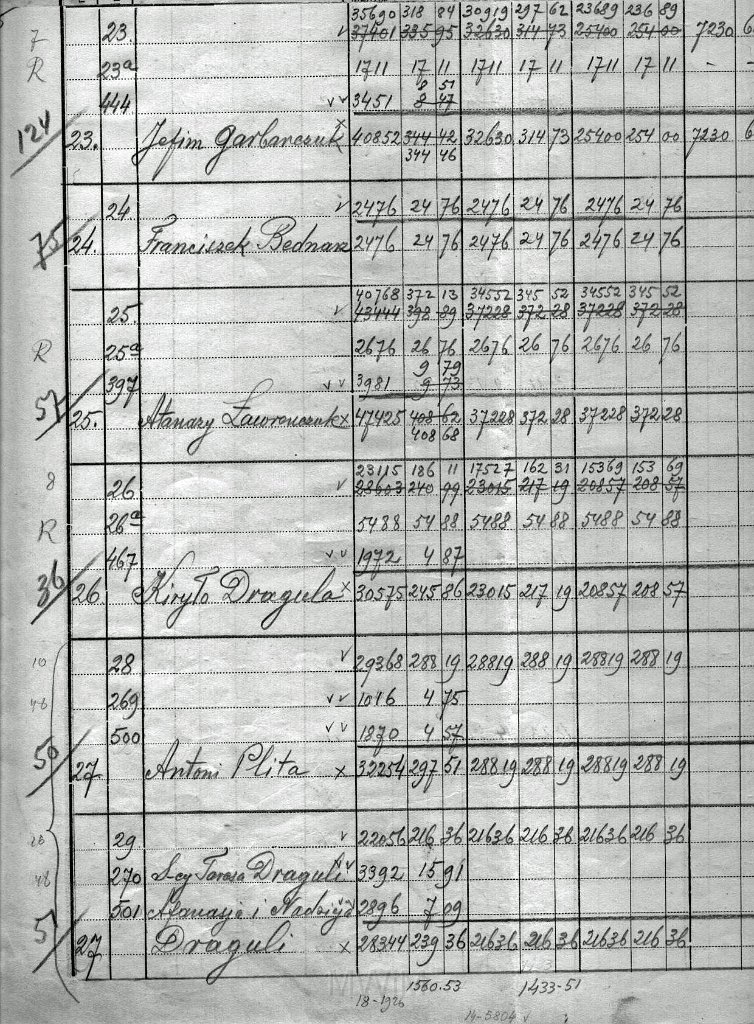 35690 318 84 30919 297 62 23689 236 89
7 23. v 37401 335 95 32630 314 73 25400 254 00 7230 6
R 23a 1711 17 11 1711 17 11 1711 17 11 - -
8 51
444 v v 3451 8 47
124 23. Jefim Garbarczuk x 40852 344 42 32630 314 73 25400 254 00 7230 6
344 46
24 v 2476 24 76 2476 24 76 2476 24 76
75 24. Franciszek Bednarz 2476 24 76 2476 24 76 2476 24 76
40768 372 13 34552 345 52 34552 345 52
25. v 43444 398 89 37228 372 28 37228 372 28
R 25a 2676 26 76 2676 26 76 2676 26 76
9 79
397 v v 3981 9 73
57 25. Atanazy Ławrenczuk x 47425 408 62 37228 372 28 37228 372 28
408 68
23115 186 11 17527 162 31 15369 153 69
8 26 v 28603 240 99 23015 217 19 20857 208 57
R 26a 5488 54 88 5488 54 88 5488 54 88
467 v v 1972 4 87
36 26. Kiryło Dragula x 30575 245 86 23015 217 19 20857 208 57
10 28 v 29368 288 19 28819 288 19 28819 288 19
48 269 v v 1016 4 75
500 v v 1870 4 57
50 27 Antoni Plita x 32254 297 51 28819 288 19 28819 288 19
29 v 22056 216 36 21636 216 36 21636 216 36
48 270 S-cy Tarasa Draguli v v 3392 15 91
501 Atanazje i Nadzieja 2896 7 09
27 Draguli x 28344 239 36 21636 216 36 21636 216 36
1560.53 1433-51
18-1926
14-5804 v